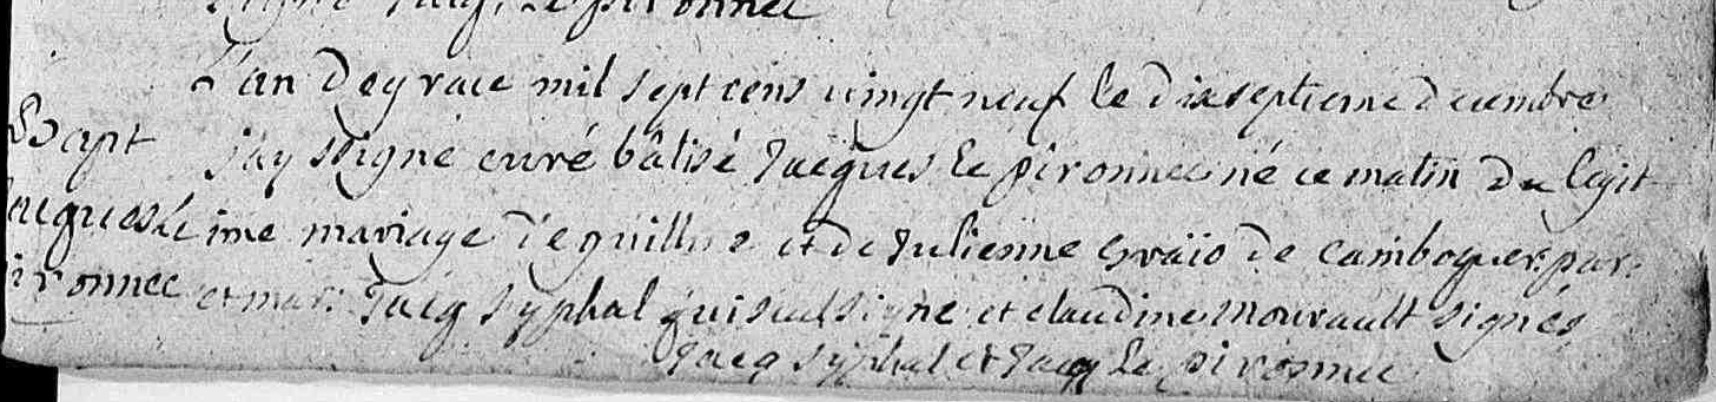 signé Jacq, Le pironnec
L'an de grace mil sept cens vingt neuf le dixseptieme decembre
Bapt j'ay ssigné curé bâtisé Jacques le pironnec né ce matin du legit
Jacques le ime mariage de guillme et de Julienne Evaïo de camboguer: par:
pironnec et mar: Jacq syphal qui seul signe et claudine mourault signés
Jacq syphal et Jacq Le pironnec